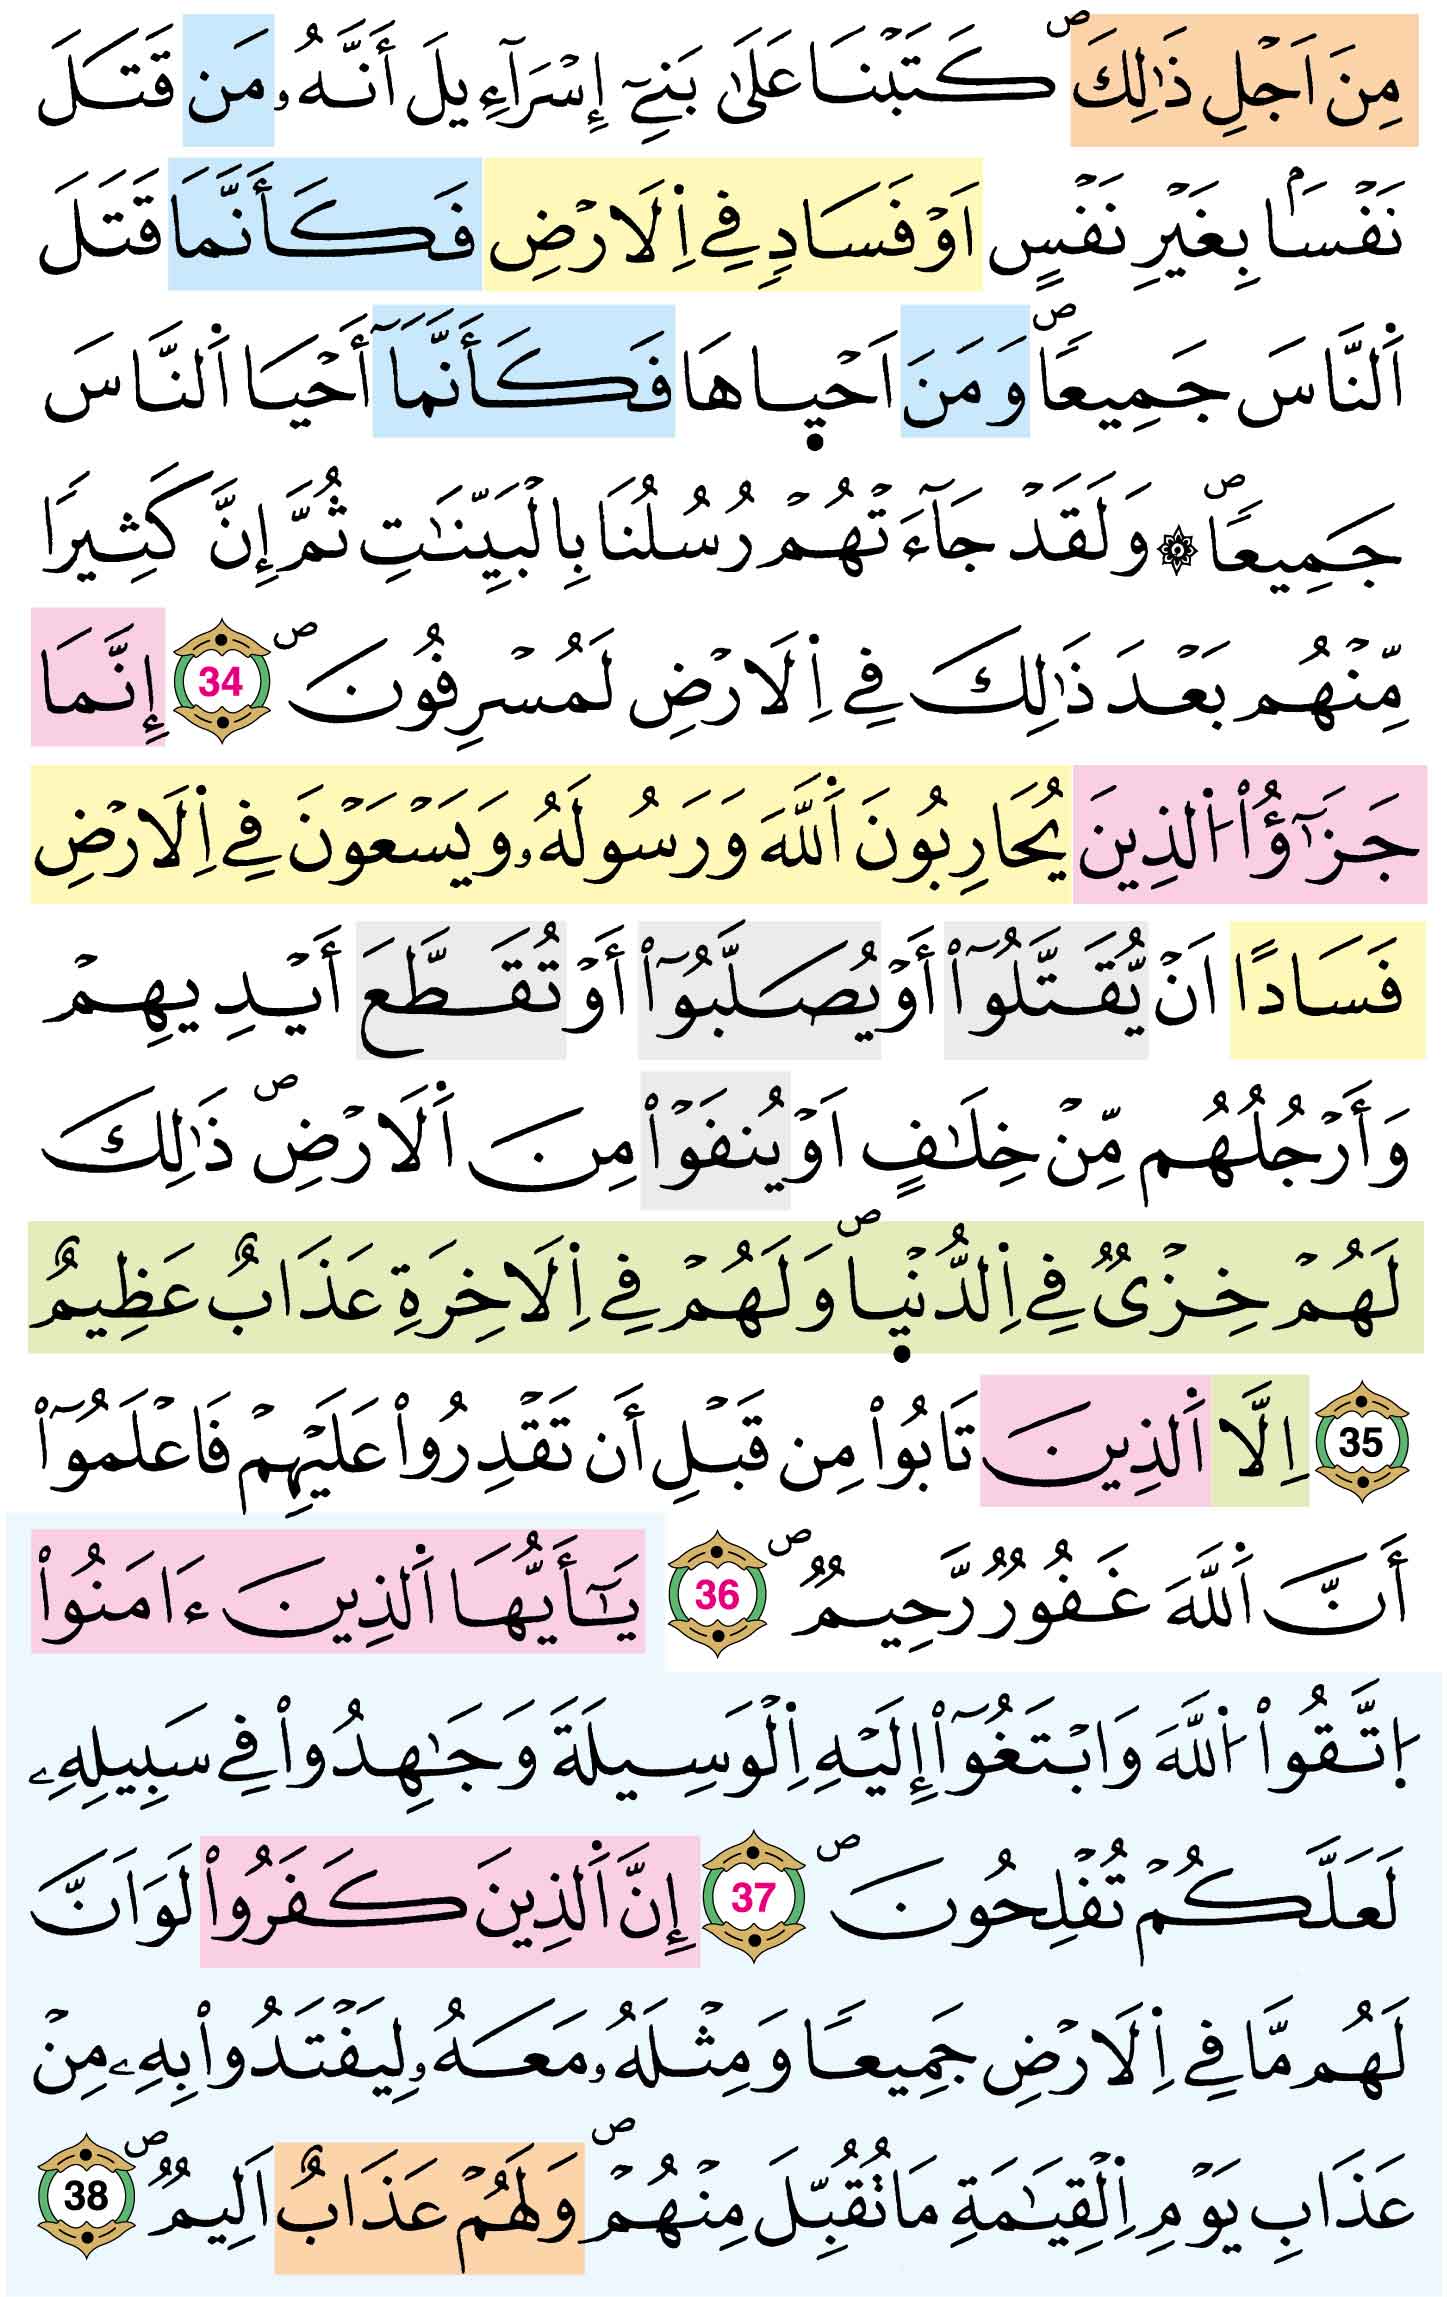 مِنَ اَجْلِ ذَٰلِكَ ۖ كَتَبْنَا عَلَىٰ بَنِےٓ إِسْرَآءِيلَ أَنَّهُۥ مَن قَتَلَ
نَفْساَۢ بِغَيْرِ نَفْسٍ اَوْ فَسَادٖ فِے اِ۬لَارْضِ فَكَأَنَّمَا قَتَلَ
اَ۬لنَّاسَ جَمِيعاٗ ۖ وَمَنَ اَحْي۪اهَا فَكَأَنَّمَآ أَحْيَا اَ۬لنَّاسَ
جَمِيعاٗ ۖ ۞ وَلَقَدْ جَآءَتْهُمْ رُسُلُنَا بِالْبَيِّنَٰتِ ثُمَّ إِنَّ كَثِيراٗ
مِّنْهُم بَعْدَ ذَٰلِكَ فِے اِ۬لَارْضِ لَمُسْرِفُونَ ۖ 34 إِنَّمَا
جَزَٰٓؤُاْ اُ۬لذِينَ يُحَارِبُونَ اَ۬للَّهَ وَرَسُولَهُۥ وَيَسْعَوْنَ فِے اِ۬لَارْضِ
فَسَاداً اَنْ يُّقَتَّلُوٓاْ أَوْ يُصَلَّبُوٓاْ أَوْ تُقَطَّعَ أَيْدِيهِمْ
وَأَرْجُلُهُم مِّنْ خِلَٰفٍ اَوْ يُنفَوْاْ مِنَ اَ۬لَارْضِ ۖ ذَٰلِكَ
لَهُمْ خِزْيٞ فِے اِ۬لدُّنْي۪ا ۖ وَلَهُمْ فِے اِ۬لَاخِرَةِ عَذَابٌ عَظِيمٌ
35 اِلَّا اَ۬لذِينَ تَابُواْ مِن قَبْلِ أَن تَقْدِرُواْ عَلَيْهِمْ فَاعْلَمُوٓاْ
أَنَّ اَ۬للَّهَ غَفُورٞ رَّحِيمٞ ۖ 36 يَٰٓأَيُّهَا اَ۬لذِينَ ءَامَنُواْ
اُ۪تَّقُواْ اُ۬للَّهَ وَابْتَغُوٓاْ إِلَيْهِ اِ۬لْوَسِيلَةَ وَجَٰهِدُواْ فِے سَبِيلِهِۦ
لَعَلَّكُمْ تُفْلِحُونَ ۖ 37 إِنَّ اَ۬لذِينَ كَفَرُواْ لَوَ اَنَّ
لَهُم مَّا فِے اِ۬لَارْضِ جَمِيعاٗ وَمِثْلَهُۥ مَعَهُۥ لِيَفْتَدُواْ بِهِۦ مِنْ
عَذَابِ يَوْمِ اِ۬لْقِيَٰمَةِ مَا تُقُبِّلَ مِنْهُمْ ۖ وَلَهُمْ عَذَابٌ اَلِيمٞ ۖ 38